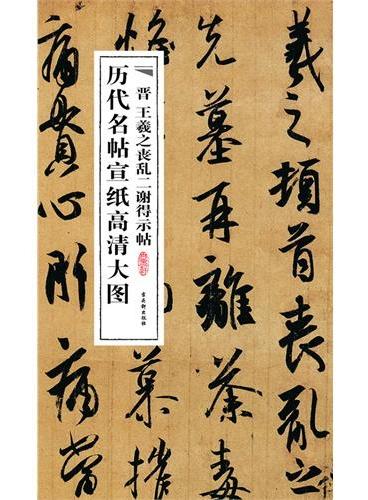 羲之頓首喪亂之
先墓再離荼毒
惟
慕摧
痛貫心肝痛當
晋 王羲之丧乱二谢得示帖
历代名帖宣纸高清大图
古吴轩出版社